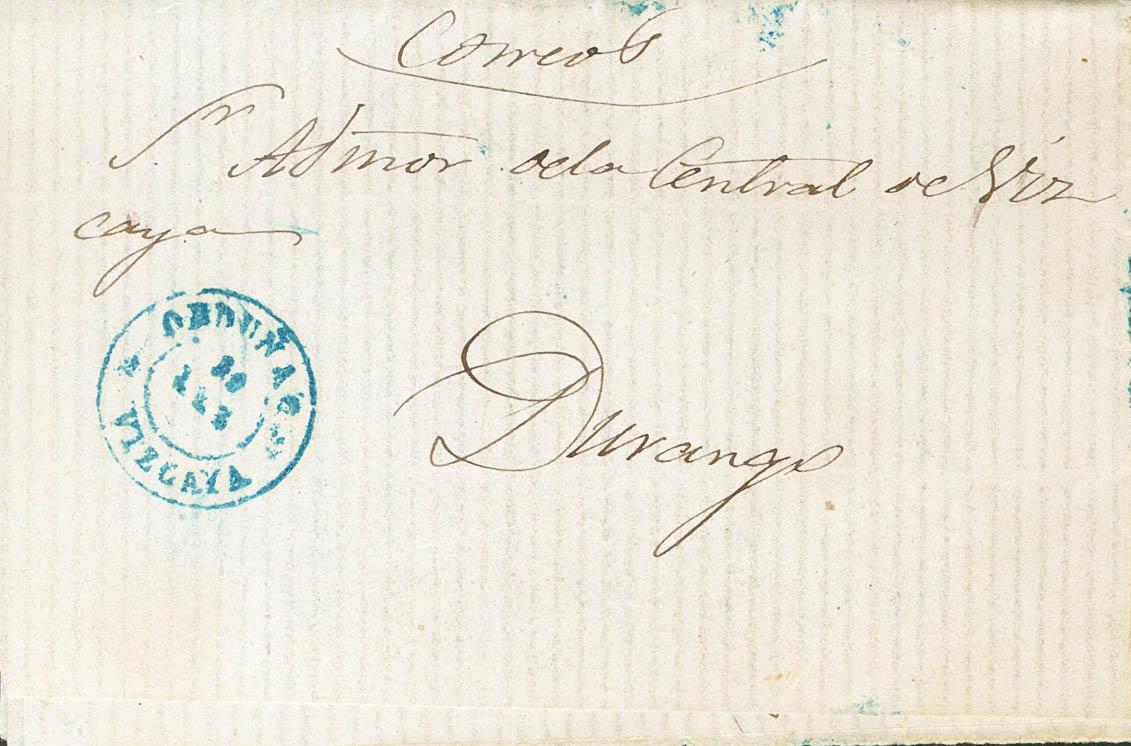 Correos
Sr Admor de la Central de Viz
caya
ORDUÑA
VIZCAYA
Durango